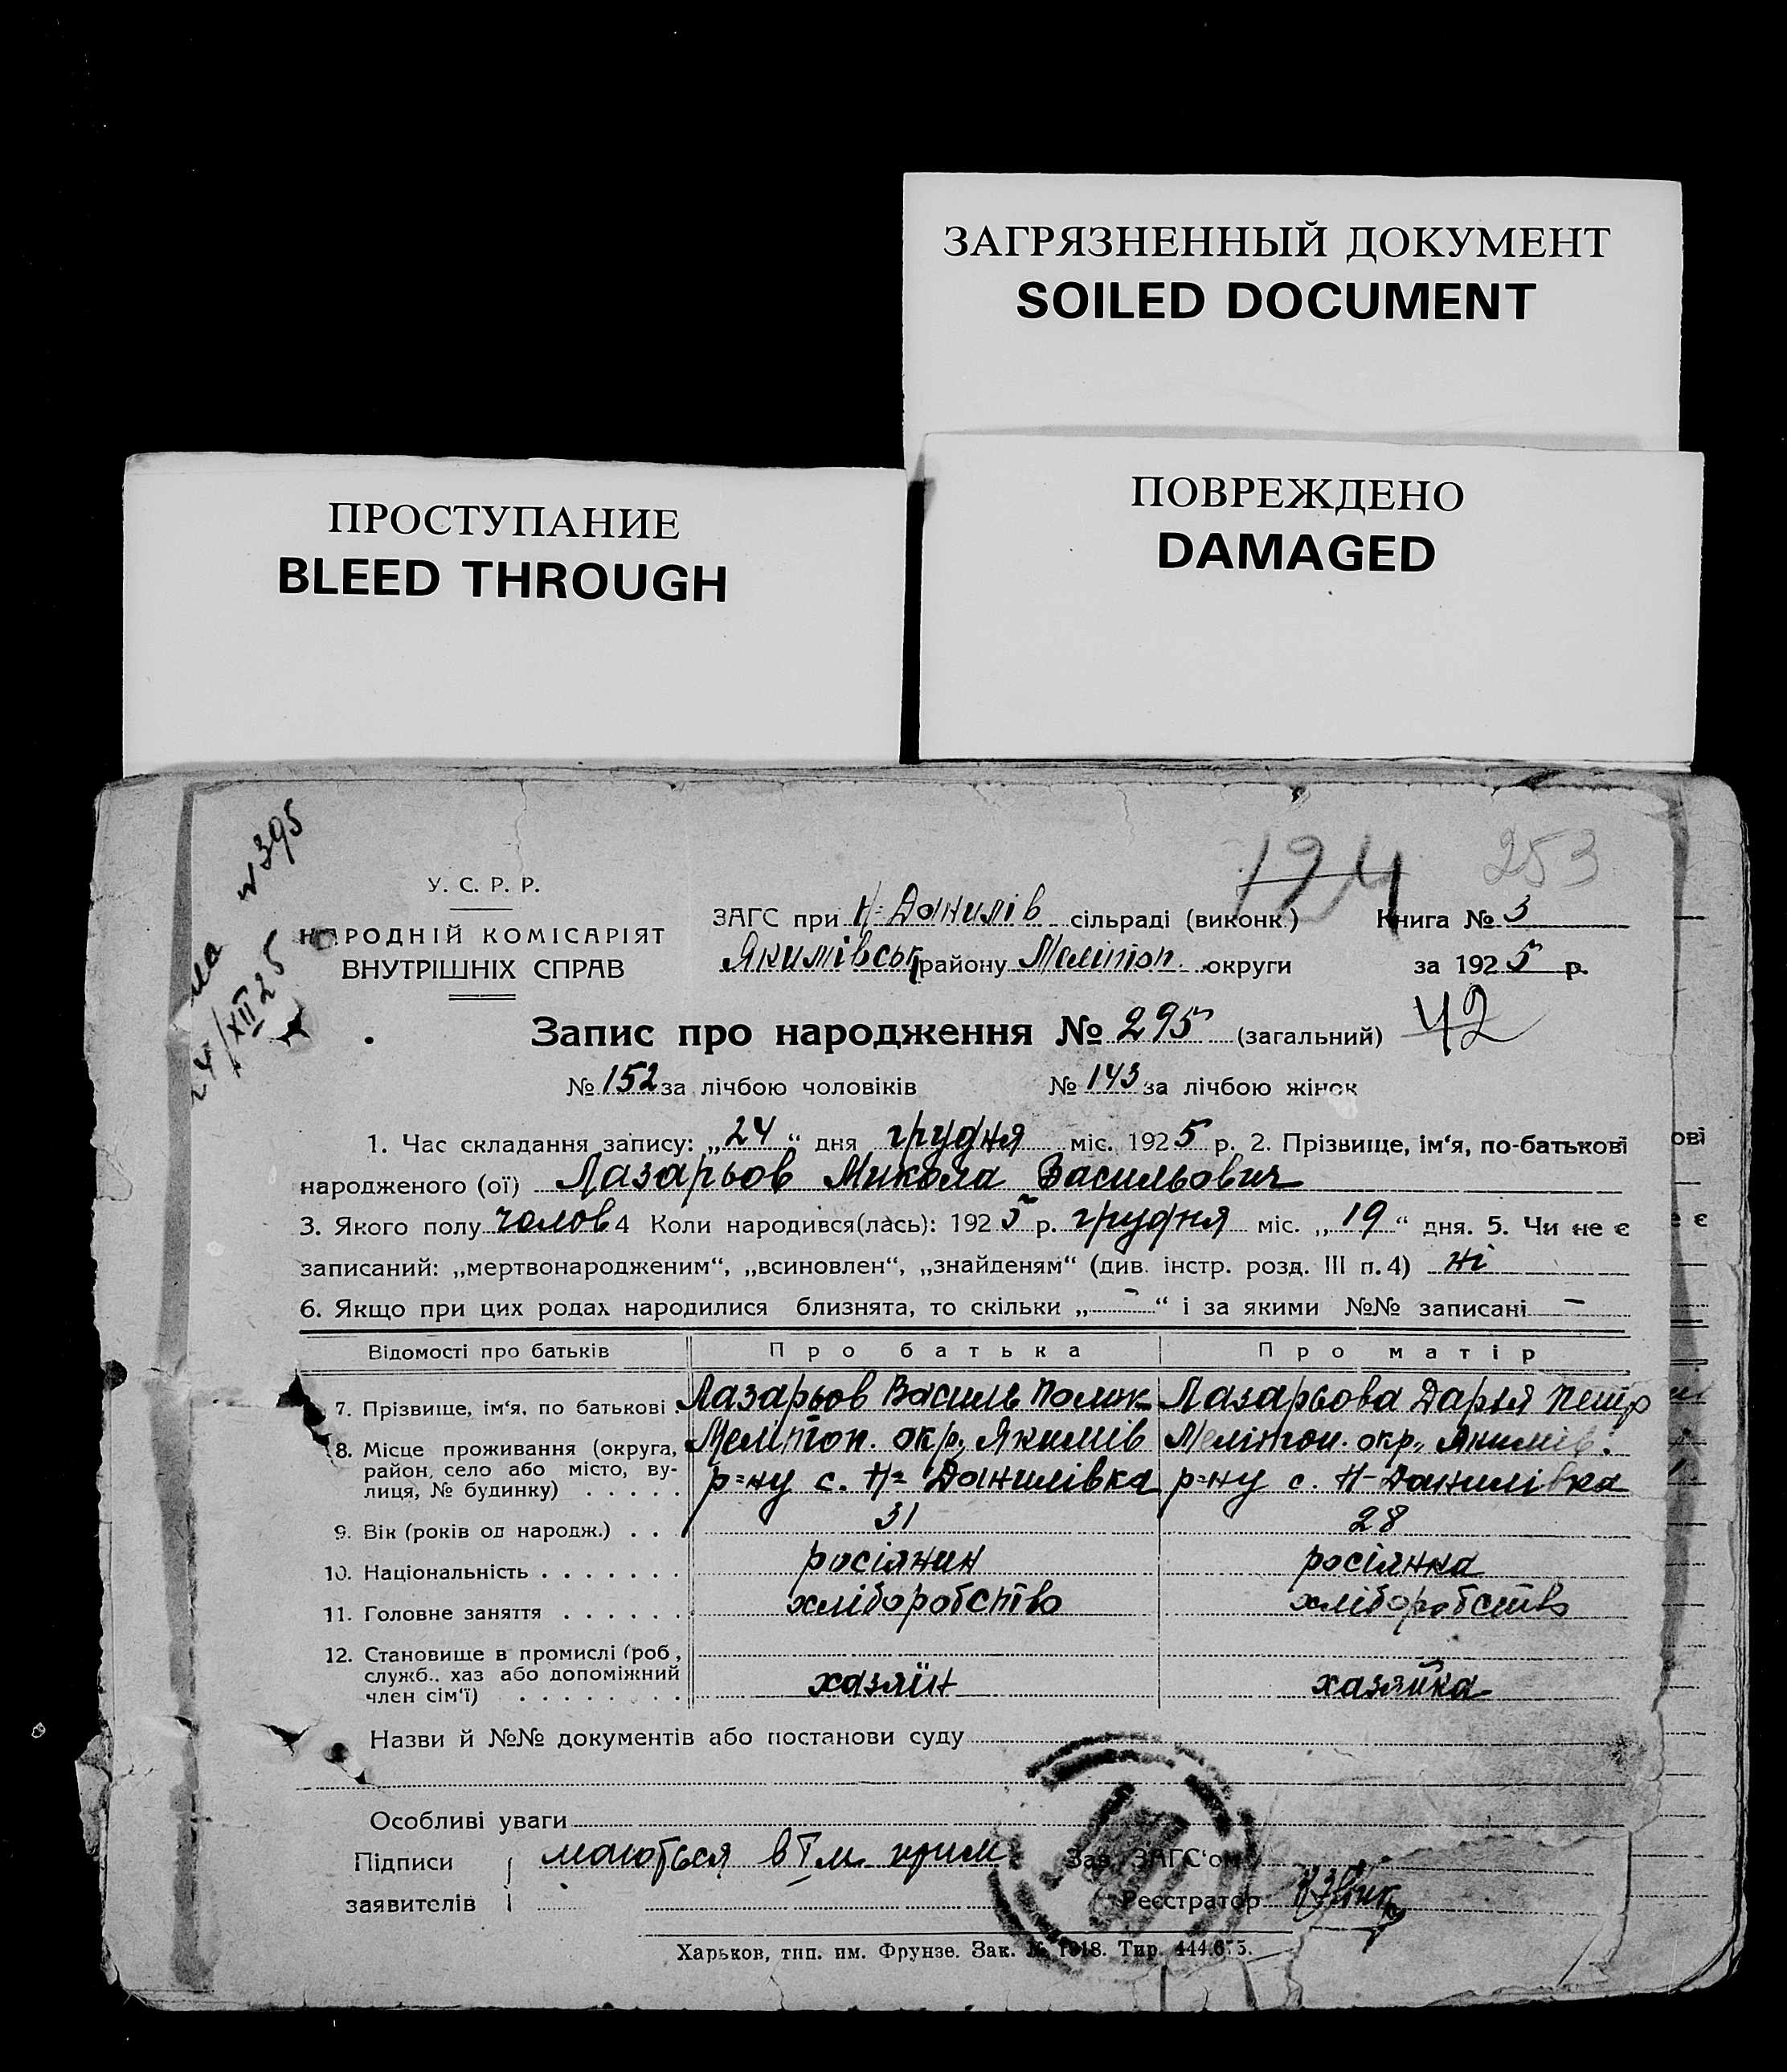 ЗАГРЯЗНЕННЫЙ ДОКУМЕНТ
SOILED DOCUMENT
ПРОСТУПАНИЕ
BLEED THROUGH
ПОВРЕЖДЕНО
DAMAGED
№395
24/XII 25
124 253
У. С. Р. Р.
НАРОДНІЙ КОМІСАРІЯТ
ВНУТРІШНІХ СПРАВ
ЗАГС при Н=Данилів сільраді (виконк.) Книга № 3
Якимівськ району Меліпоп. округи за 1925 р.
Запис про народження № 295 (загальний) 42
№ 152 за лічбою чоловіків № 143 за лічбою жінок
1. Час складання запису: „24“ дня грудня міс. 1925 р. 2. Прізвище, ім‘я, по-батькові
народженого (ої) Лазарьов Микола Васильович
3. Якого полу чолов 4 Коли народився(лась): 1925 р. грудня міс. „19“ дня. 5. Чи не є
записаний: „мертвонародженим“, „всиновлен“, „знайденям“ (див. інстр. розд. III п. 4) ні
6. Якщо при цих родах народилися близнята, то скільки „-“ і за якими №№ записані -
Відомості про батьків Про батька Про матір
7. Прізвище, ім‘я, по батькові Лазарьов Василь Полик= Лазарьова Дарья Петр
8. Місце проживання (округа, район, село або місто, вулиця, № будинку) Меліпоп. окр., Якимів Меліпоп. окр., Якимів.
р=ну с. Н=Данилівка р=ну с. Н-Данилівка
9. Вік (років од народж.) 31 28
10. Національність росіянин росіянка
11. Головне заняття хліборобство хліборобство
12. Становище в промислі (роб., служб., хаз або допоміжний член сім‘ї) хазяїн хазяйка
Назви й №№ документів або постанови суду
Особливі уваги
Підписи маються в I м. прим Зав. ЗАГС‘ом
заявителів Реєстратор
Харьков, тип. им. Фрунзе. Зак. № 1918. Тир. 444.675.